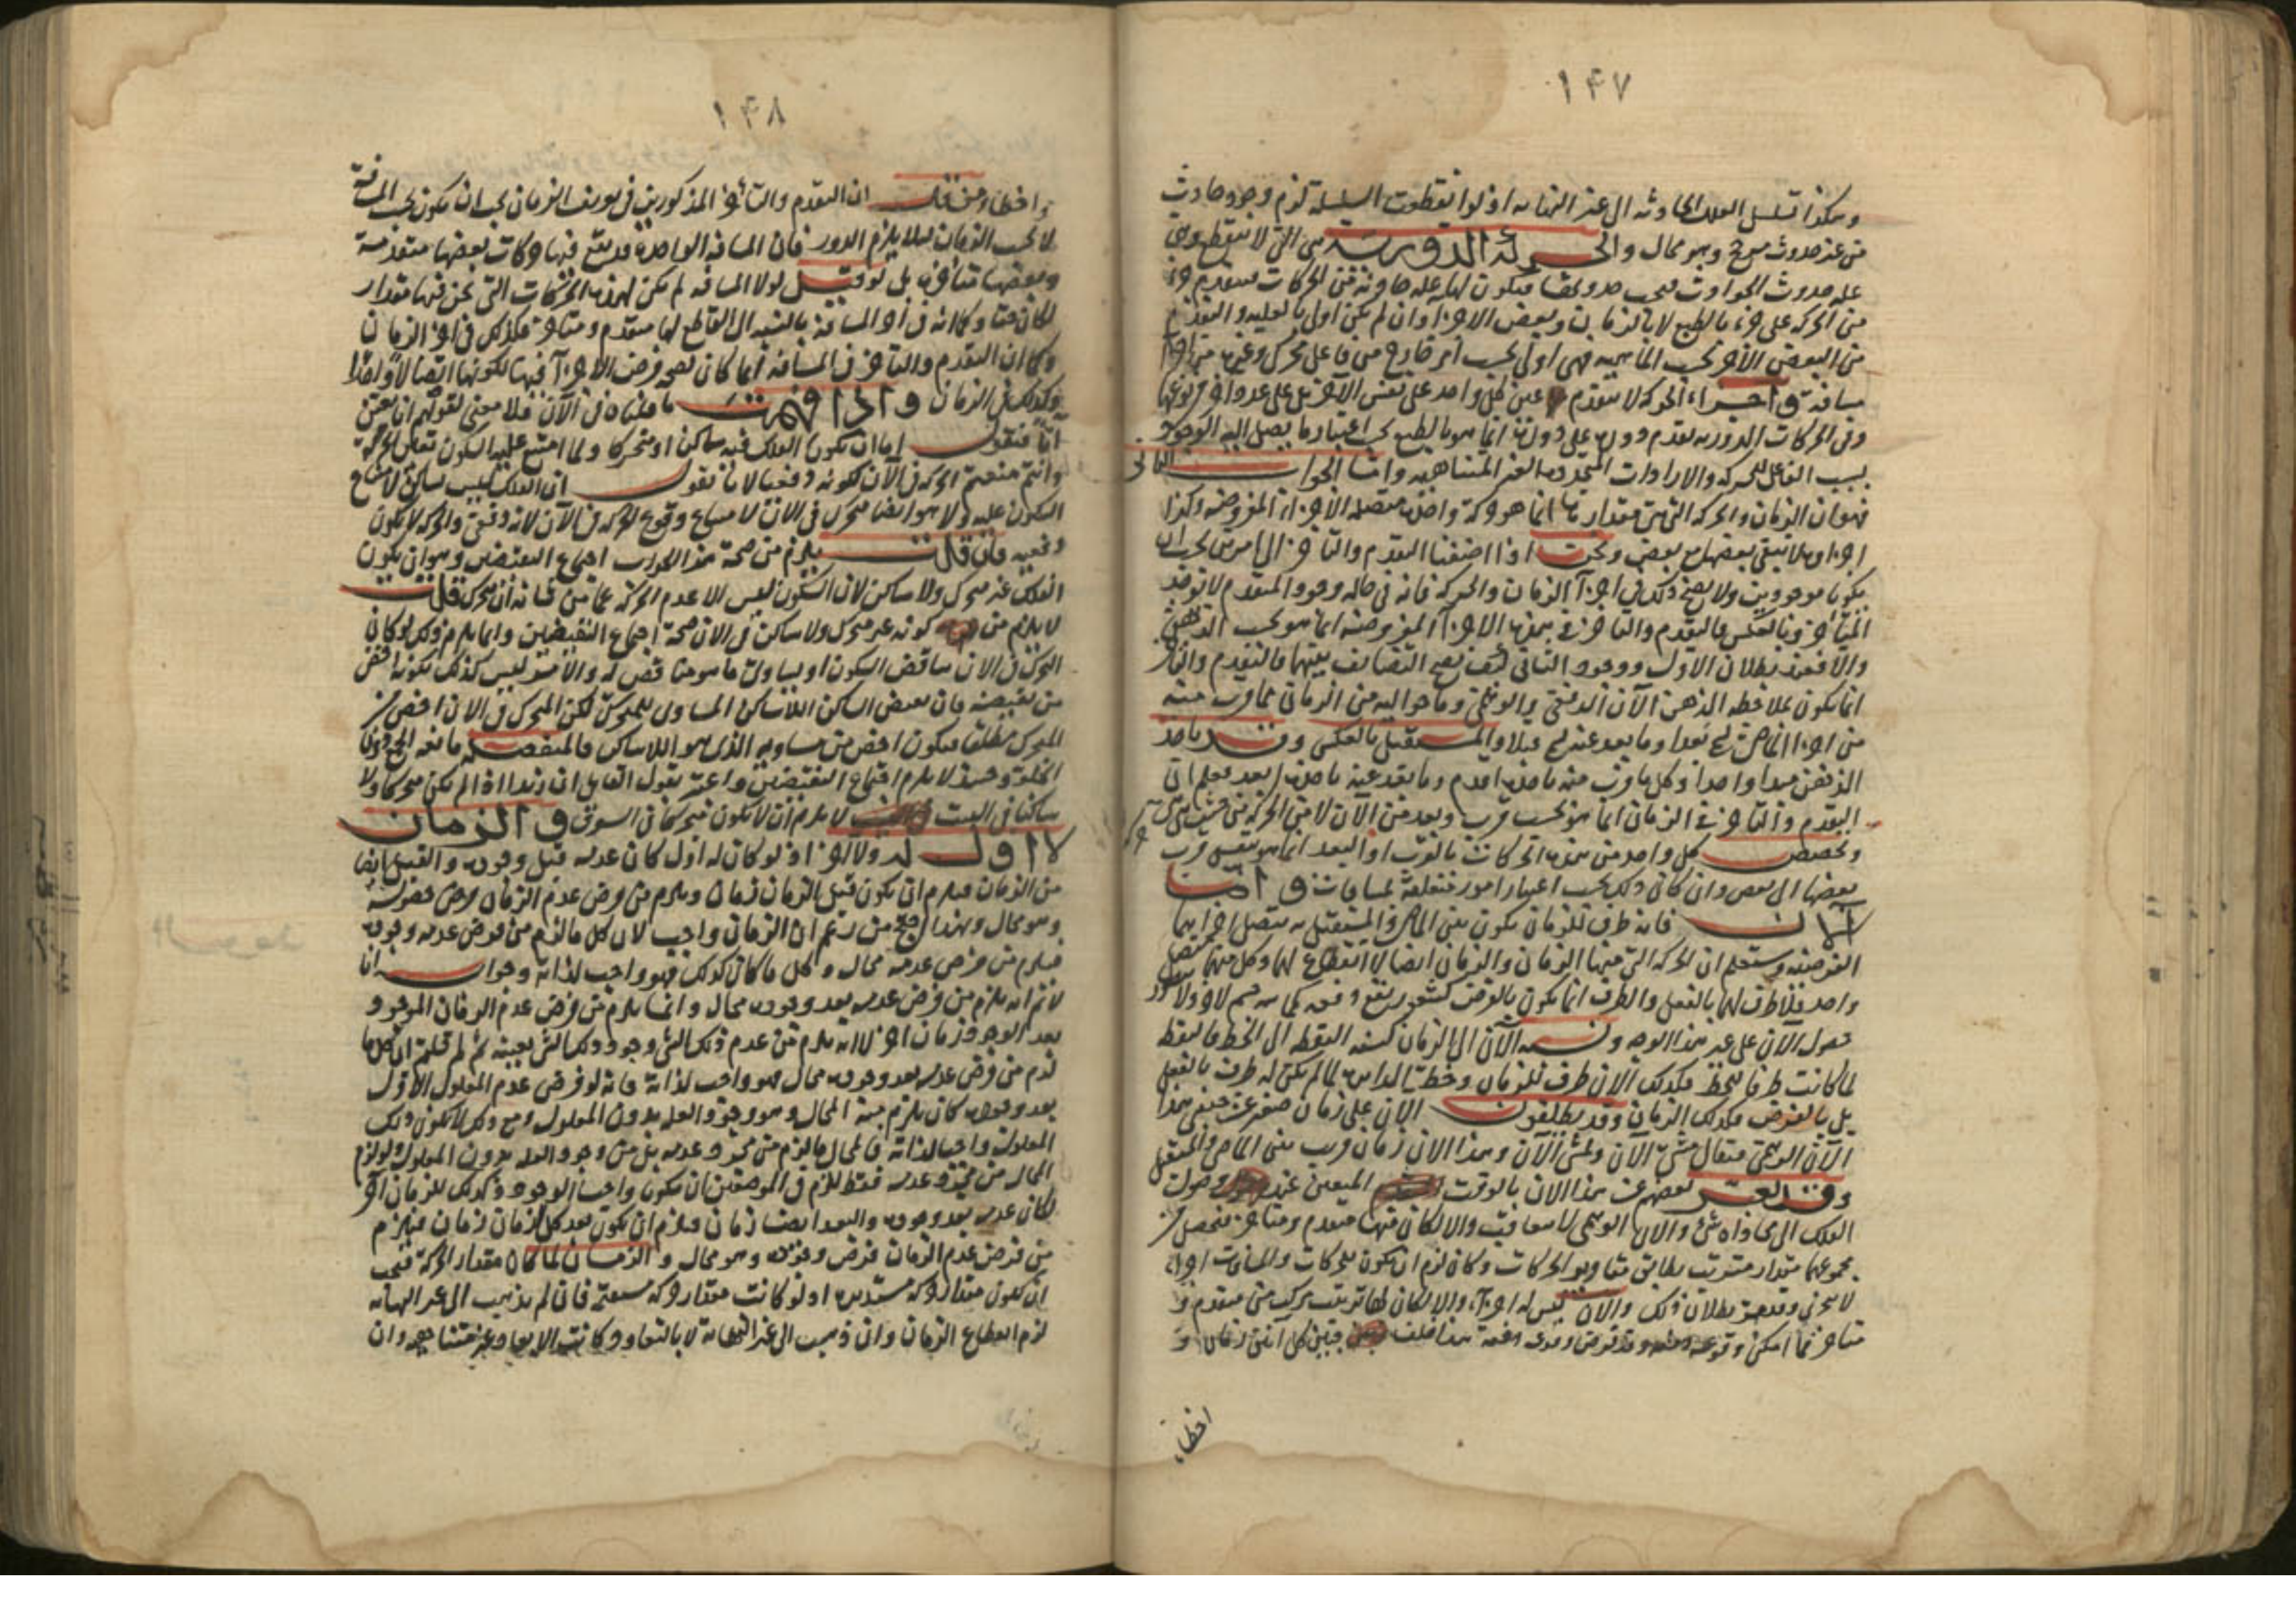 ١۴٧
وهكذا تسلسل العلل الحادثة الى غير النهاية اذ لو انقطعت السلسلة لزم وجود حادث
من غير حدوث مرجح وهو محال والحركة الدورية هى التى لا تنقطع وهى
علة حدوث الحوادث
من الحركة على جزء بالطبع لا بالزمان وبعض الاجزاء وان لم يكن اولى بالعلية والتقدم
من البعض الآخر بحسب الماهية فهى اولى بحسب امر خارج من فاعل محرك وغيره من اجزاء
مسافة واجزاء الحركة لا تتقدم عين كل واحد على بعض الآخر بل على عدد آخر
وفى الحركات الدورية تقدم دورة على دورة انما هو بالطبع بحسب اعتبار ما يصل اليه الوجود
بسبب الفاعل للحركة والارادات المتجددة الغير المتناهية واما الجواب الثانى
فهو ان الزمان والحركة التى هى مقدارها انما هو حركة واحدة متصلة الاجزاء المفروضة وكذا
اجزاؤه لا يبقى بعضها مع بعض ونحن اذا اضفنا التقدم والتأخر الى امرين يجب ان
يكونا موجودين ولا يصح ذلك فى اجزاء الزمان والحركة فانه فى حالة وجود المتقدم لا توجد
المتأخر وبالعكس فالتقدم والتأخر فى هذه الاجزاء المفروضة انما هو بحسب الذهن
والا فعند بطلان الاول ووجود الثانى كيف يصح التضايف بينهما فالتقدم والتأخر
انما يكون بملاحظة الذهن الآن الدفعى والوهمى وما حواليه من الزمان فما قرب منه
من اجزاء الماضى بعدا وما بعد عنه قبلا والمستقبل بالعكس وقد ياخذ
الذهن مبدا واحدا وكل ما قرب منه ياخذه اقدم وما بعد عنه ياخذه ابعد فعلم ان
التقدم والتأخر فى الزمان انما هو بحسب قرب وبعد من الآن لا من الحركة من حيث هى
وتخصص كل واحد من هذه الحركات بالقرب او البعد انما هو بنفس قرب
بعضها الى بعض وان كان ذلك بحسب اعتبار امور متعلقة لمسافات واما
الآن فانه طرف للزمان يكون بين الماضى والمستقبل به يتصل اجزاؤهما
الفرضية وستعلم ان الحركة التى منها الزمان والزمان ايضا لا انقطاع لها وكل منهما متصل
واحد فلا طرف لها بالفعل والطرف انما يكون بالفرض
حصول الآن على غير هذا الوجه ونسبة الآن الى الزمان كنسبة النقطة الى الخط فالنقطة
لما كانت طرفا للخط فكذلك الآن طرف للزمان وخط الدايرة لما لم يكن له طرف بالفعل
بل بالفرض فكذلك الزمان وقد يطلقون الآن على زمان صغير عن جنبى هذا
الآن الوهمى فيقال مشى الآن ويمشى الآن وهذا الآن زمان قريب من الماضى والمستقبل
وقد يعبر بعضهم عن هذا الآن بالوقت المعين عند وصول
الفلك الى محاذاة شئ والآن الوهمى لا يتعاقب والا لكان منها متقدم ومتأخر فيحصل من
مجموعهما مقدار مترتب يطابق مقادير الحركات وكان لزم ان يكون للحركات والمسافات اجزاء
لا تتجزى وقد عرفت بطلان ذلك والآن ليس له اجزاء والا لكان لها ترتب مركب من متقدم و
متأخر فما امكن وقوعه دفعة وقد فرض وقوعه دفعة هذا خلف فبين كل آنين زمان و
اخطاء
١۴٨
واخطاء من قال ان التقدم والتأخر المذكورين فى تعريف الزمان يجب ان يكون بحسب المسافة
لا بحسب الزمان ليلا يلزم الدور فان المسافة الواحدة قد يقع فيها حركات بعضها متقدمة
وبعضها متأخرة بل لو قيل لولا المسافة لم يكن لهذه الحركات التى نحن فيها مقدار
لكان حقا وكما انه فى اجزاء المسافة بالنسبة الى القاطع لها متقدم ومتأخر فكذلك فى اجزاء الزمان
وكما ان التقدم والتأخر فى المسافة انما كان بصحة فرض الاجزاء فيها لكونها اتصالا واحدا
فكذلك فى الزمان واذا فهمت ما قلناه فى الآن فلا معنى لقولهم انا نعين
آنا فنقول اما ان يكون الفلك فيه ساكنا او متحركا ولما امتنع عليه السكون تعين الحركة
وانتم منعتم الحركة فى الآن لكونه دفعيا لانا نقول ان الفلك ليس ساكنا لامتناع
السكون عليه ولا هو ايضا متحرك فى الآن لامتناع وقوع الحركة فى الآن لانه دفعى والحركة لا يكون
دفعية فان قلت يلزم من صحة هذا الجواب اجتماع النقيضين وهو ان يكون
الفلك غير متحرك ولا ساكن لان السكون ليس الا عدم الحركة عما من شانه ان يتحرك قلت
لا يلزم من كونه غير متحرك ولا ساكن فى الآن صحة اجتماع النقيضين وانما يلزم ذلك لو كان
التحرك فى الآن يناقض السكون او يساوى ما هو مناقض له والامر ليس كذلك لكونه اخص
من نقيضه فان نقيض الساكن اللاساكن المساوى للمتحرك لكن المتحرك فى الآن اخص من
المتحرك مطلقا فيكون اخص من مساويه الذى هو اللاساكن
وحينئذ لا يلزم اجتماع النقيضين واعتبر بقول القايل ان زيدا اذا لم يكن متحركا ولا
ساكنا فى البيت لا يلزم ان لا يكون متحركا فى السوق والزمان
لا اول له ولا آخر اذ لو كان له اول كان عدمه قبل وجوده والقبل ايضا
من الزمان فيلزم ان يكون قبل الزمان زمان ويلزم من فرض عدم الزمان فرض حصوله
وهو محال وبهذا احتج من زعم ان الزمان واجب لان كل ما لزم من فرض عدمه وجوده
فيلزم من فرض عدمه محال وكل ما كان كذلك فهو واجب لذاته وجوابه انا
لا نم انه يلزم من فرض عدمه بعد وجوده محال وانما يلزم من فرض عدم الزمان الموجود
بعد الوجود زمان آخر لا انه يلزم من عدم ذلك الشئ وجود ذلك الشئ بعينه ثم لم قلتم ان كل ما
لزم من فرض عدمه بعد وجوده محال فهو واجب لذاته فانه لو فرض عدم المعلول الاول
بعد وجوده كان يلزم منه المحال وهو وجود العلة بدون المعلول ومع ذلك لا يكون ذلك
المعلول واجبا لذاته فالمحال ما لزم من مجرد عدمه بل من وجود العلة بدون المعلول ولو لزم
المحال من مجرد عدمه فقط للزم فى الموضعين ان يكونا واجبا الوجود وكذلك للزمان آخر
لكان عدمه بعد وجوده والبعد ايضا زمان فيلزم ان يكون بعد كل زمان زمان فيلزم
من فرض عدم الزمان فرض وجوده وهو محال والزمان لما كان مقدار الحركة فيجب
ان يكون مقدار حركة مستديرة اذ لو كانت مقدار حركة مستقيمة فان لم يذهب الى غير النهاية
لزم انقطاع الزمان وان ذهبت الى غير النهاية لا بالتعاود وكانت الابعاد غير متناهية وان